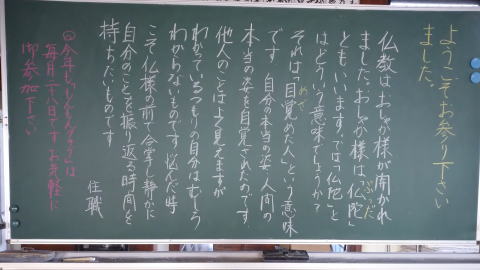 ようこそお参り下さい
ました。
仏教はおしゃか様が開かれ
ました。おしゃか様は「仏陀」
ぶっだ
ともいいます。では「仏陀」と
はどういう意味でしょうか?
それは「目覚めた人」という意味
めざ
です 自分の本当の姿、人間の
本当の姿を自覚されたのです
他人のことはよく見えますが
わかているつもりの自分はむしろ
わからないものです 悩んだ時
こそ仏様の前で合掌し静かに
自分のことを振り返る時間を
持ちたいものです
住職
毎月二十八日です お気軽に
御参加下さい